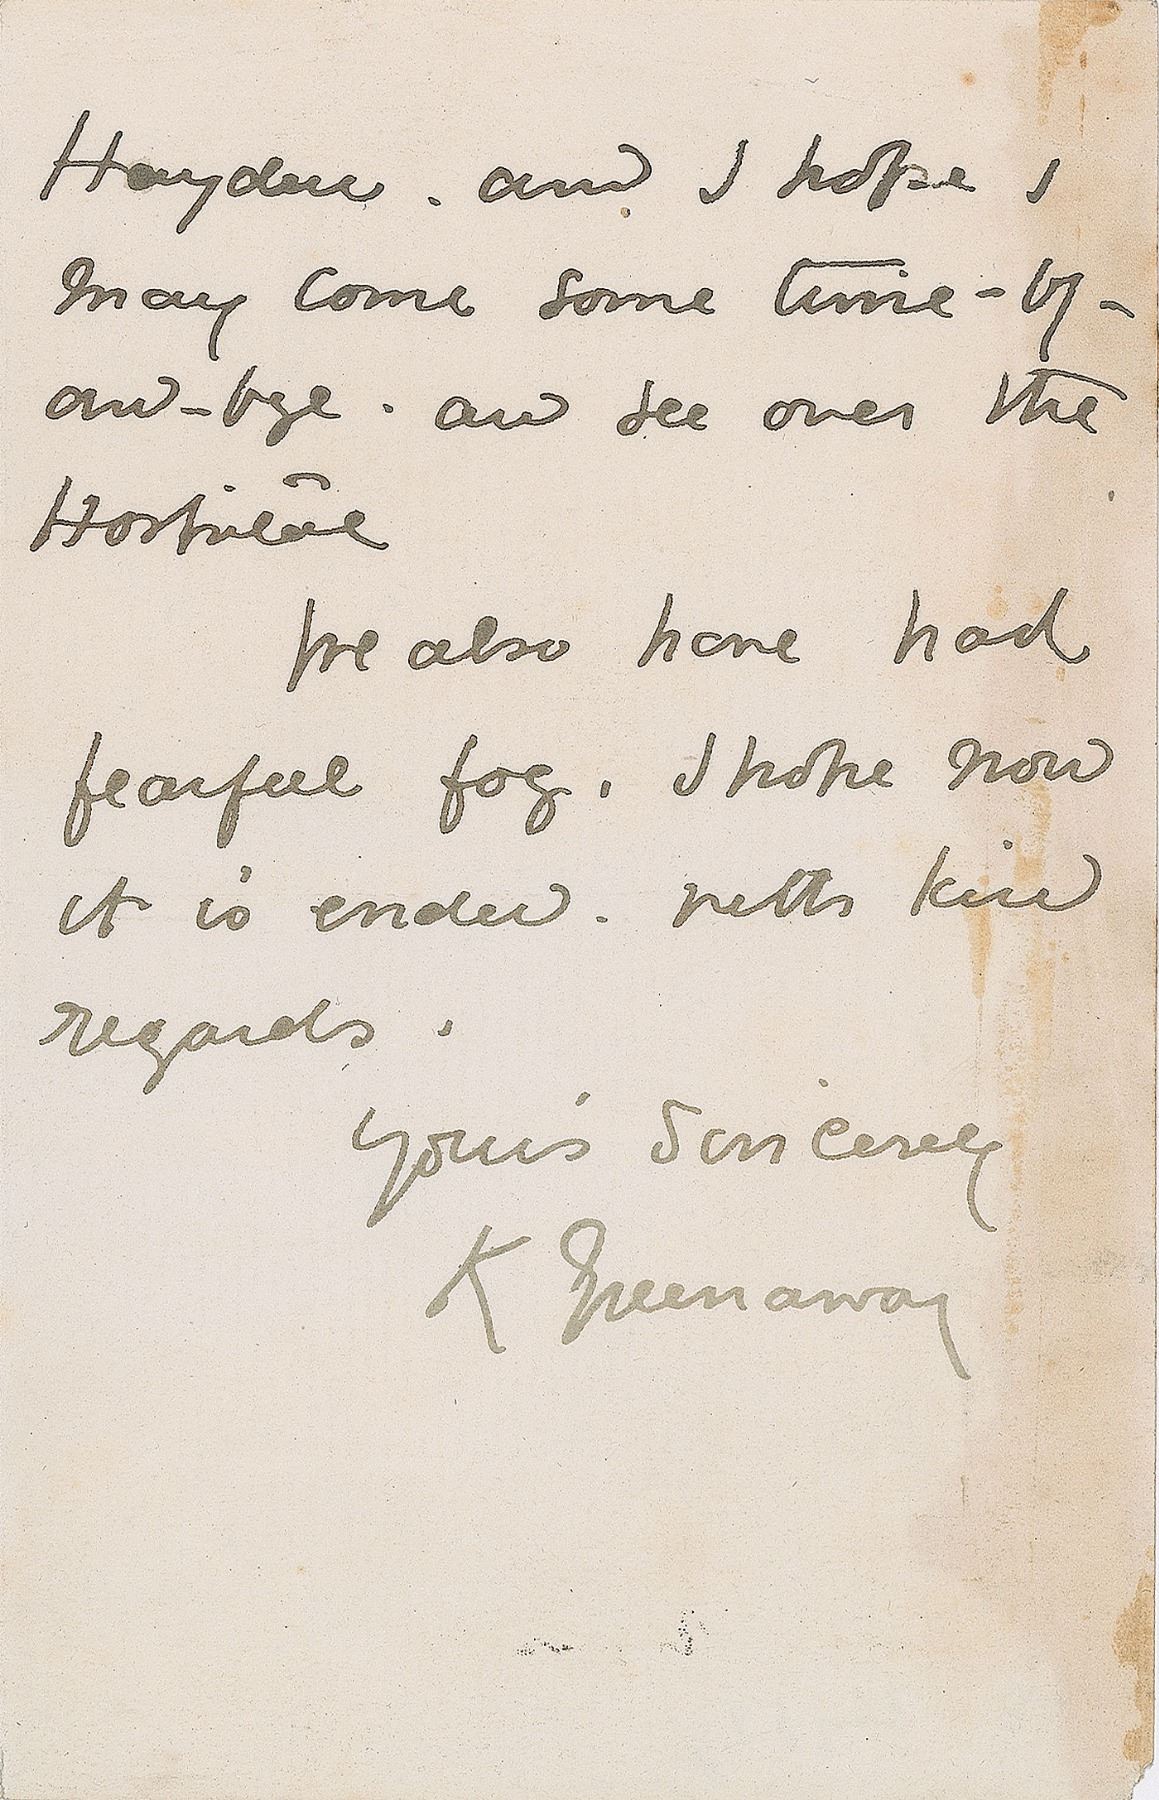 Hayden. and I hope I
may come some time-by-
and-bye. and see over the
Hospital
We also have had
fearful fog. I hope now
it is ended. with kind
regards.
Yours Sincerely
K Greenaway